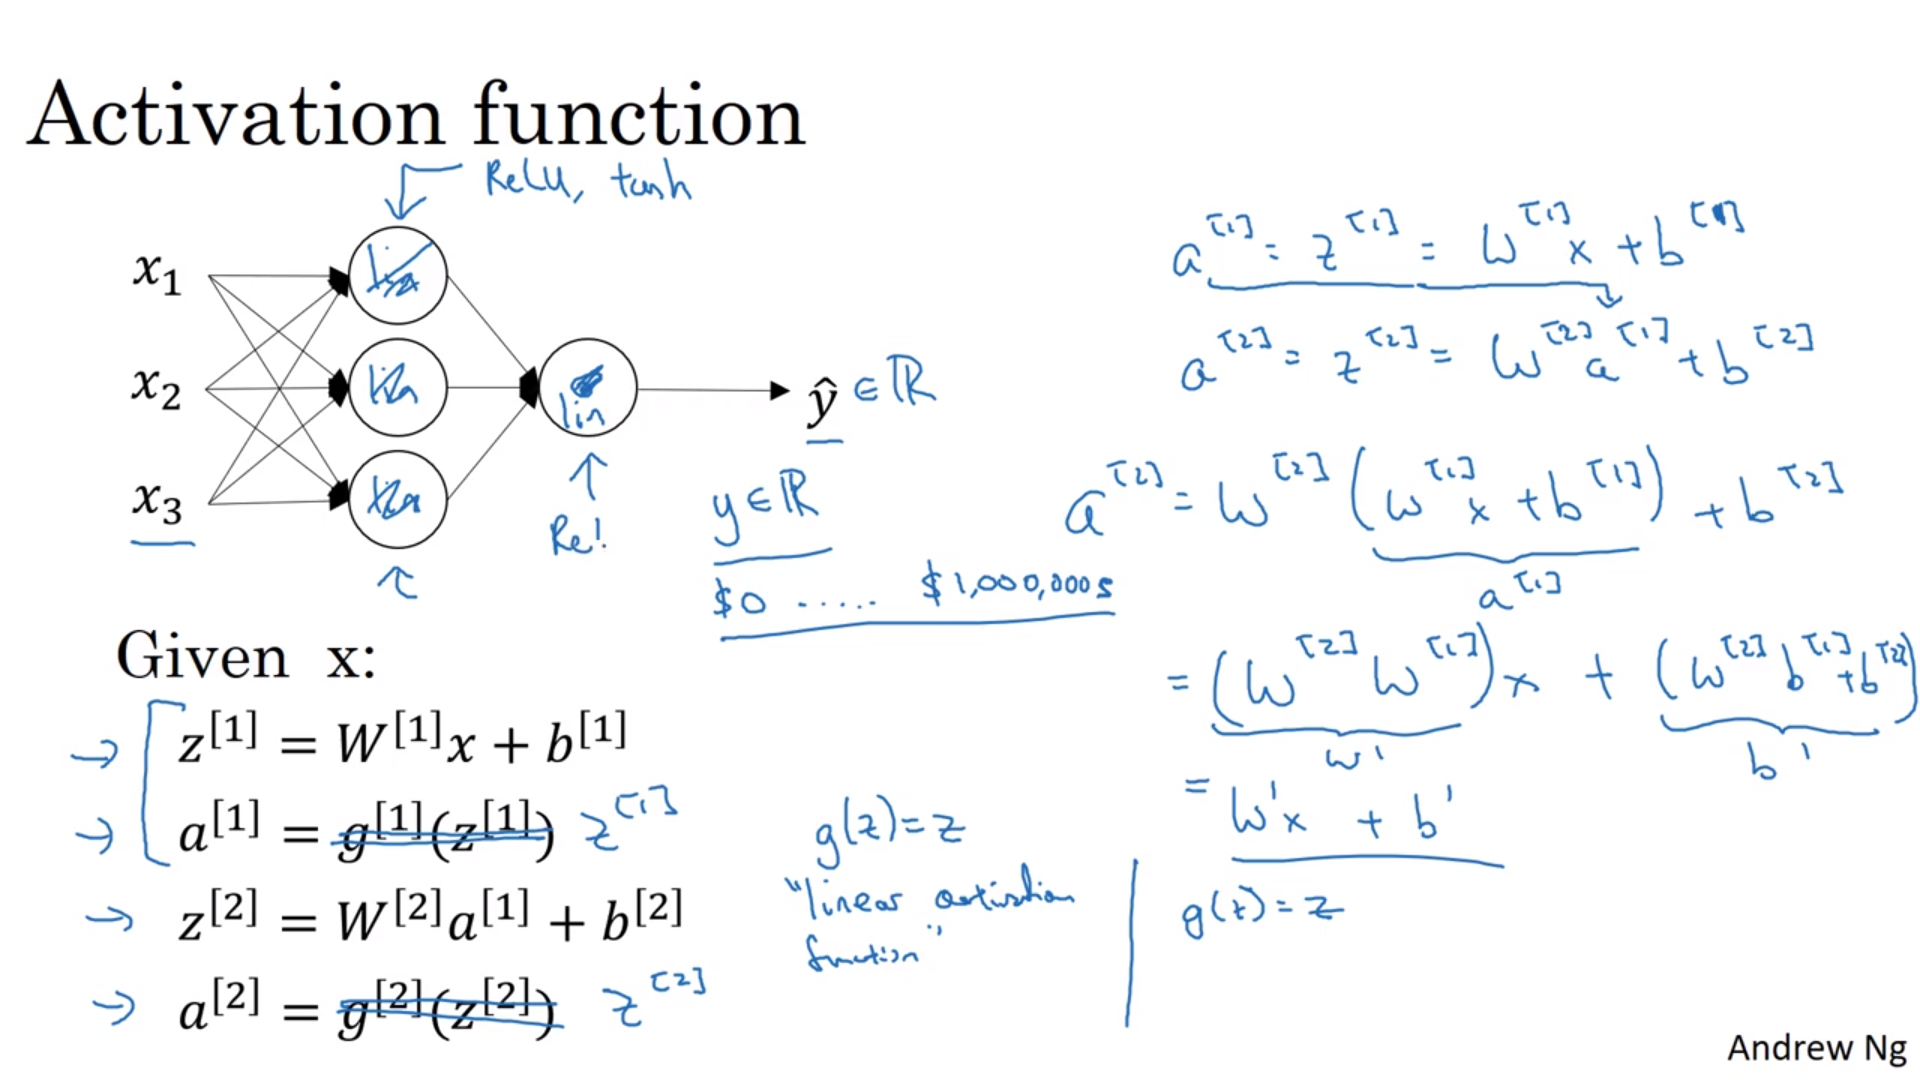 Activation function
ReLU, tanh
x₁
x₂
x₃
lin
ŷ ∈ ℝ
ReL
y ∈ ℝ
$0 ..... $1,000,000s
Given x:
→ z^[1] = W^[1]x + b^[1]
→ a^[1] = g^[1](z^[1]) z^[1]
→ z^[2] = W^[2]a^[1] + b^[2]
→ a^[2] = g^[2](z^[2]) z^[2]
g(z) = z
"linear activation
function"
a^[1] = z^[1] = W^[1]x + b^[1]
a^[2] = z^[2] = W^[2]a^[1] + b^[2]
a^[2] = W^[2](W^[1]x + b^[1]) + b^[2]
a^[1]
= (W^[2]W^[1])x + (W^[2]b^[1] + b^[2])
W' b'
= W'x + b'
g(z) = z
Andrew Ng